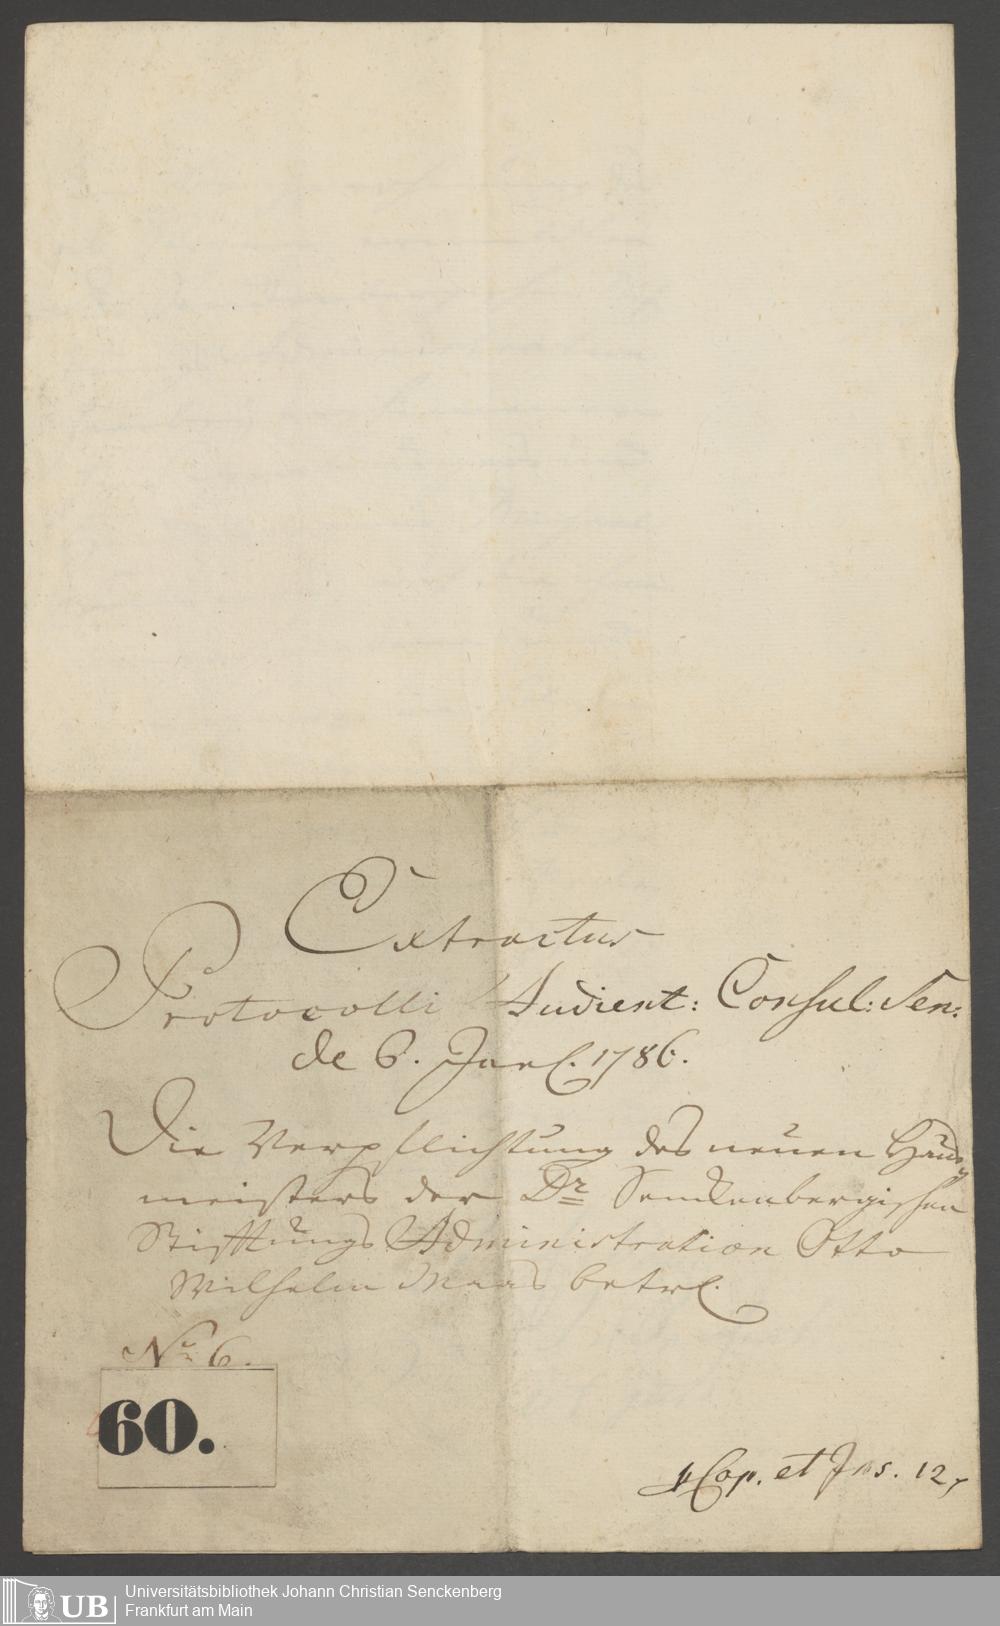 Extractus
Protocolli Audient: Consul: Sen:
de 6. Jan. 1786.
Die Verpflichtung des neuen Haus-
meisters der Dr Senckenbergischen
Stifftungs Administration Otto
Wilhelm Maas betr.
No 6.
60.
Cop. et Ins. 12
Universitätsbibliothek Johann Christian Senckenberg
Frankfurt am Main
UB